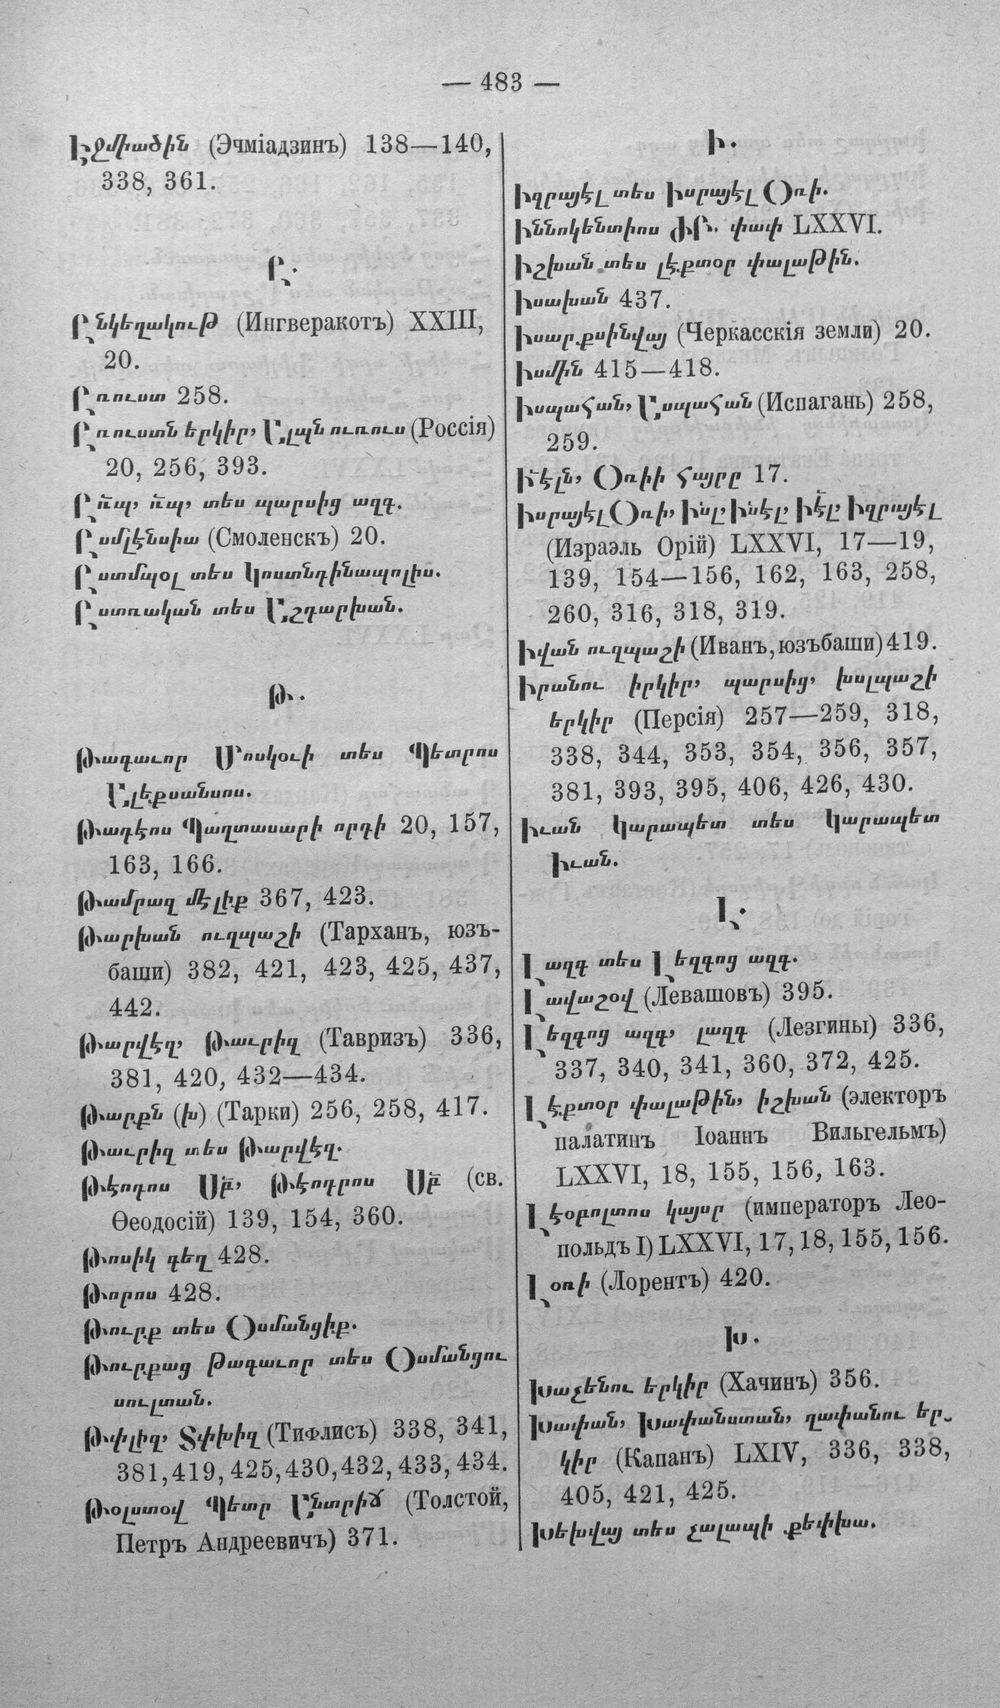 — 483 —
Էջմիածին (Эчміадзинъ) 138—140,
338, 361.
Ը.
Ընկեղակութ (Ингверакотъ) XXIII,
20.
Ըռուստ 258.
Ըռուստն երկիր, Ալպն ուռուս (Россія)
20, 256, 393.
տես պարսից ազգ.
Ըսմլէնսիա (Смоленскъ) 20.
Ըստմպօլ տես Կոստնդինապոլիս.
Ըստռական տես Աշդարխան.
Թ.
Թագաւոր Մոսկօւի տես Պետրոս
Ալեքսանսոս.
Թադէոս Պաղտասարի որդի 20, 157,
163, 166.
Թամրազ մէլիք 367, 423.
Թարխան ուզպաշի (Тарханъ, юзъ-
баши) 382, 421, 423, 425, 437,
442.
Թարվէզ, Թաւրիզ (Тавризъ) 336,
381, 420, 432—434.
Թարքն (խ) (Тарки) 256, 258, 417.
Թաւրիզ տես Թարվէզ.
Թէոդոս Սբ, Թէոդրոս Սբ (св.
Ѳеодосій) 139, 154, 360.
Թոսիկ գեղ 428.
Թորոս 428.
Թուրք տես Օսմանցիք.
Թուրքաց թագաւոր տես Օսմանցու
սուլտան.
Թփլիզ, Տփխիզ (Тифлисъ) 338, 341,
381, 419, 425, 430, 432, 433, 434.
Թօլստով Պետր Ընտրիճ (Толстой,
Петръ Андреевичъ) 371.
Ի.
Իզրայէլ տես Իսրայէլ Օռի.
Իննոկենտիոս ԺԲ. փափ LXXVI.
Իշխան տես լէքտօր փալաթին.
Իսախան 437.
Իսարքսինվայ (Черкасскія земли) 20.
Իսմին 415—418.
Իսպահան, Ասպահան (Испагань) 258,
259.
Օռիի հայրը 17.
Իսրայէլ Օռի, Ինլ, Ինէլ, Իէլ, Իզրայէլ
(Израэль Орій) LXXVI, 17—19,
139, 154—156, 162, 163, 258,
260, 316, 318, 319.
Իվան ուզպաշի (Иванъ, юзъбаши) 419.
Իրանու իրկիր, պարսից, խսլպաշի
երկիր (Персія) 257—259, 318,
338, 344, 353, 354, 356, 357,
381, 393, 395, 406, 426, 430.
Իւան Կարապետ տես Կարապետ
Իւան.
Լ.
Լազգ տես Լեզգոց ազգ.
Լավաշօվ (Левашовъ) 395.
Լեզգոց ազգ, լազգ (Лезгины) 336,
337, 340, 341, 360, 372, 425.
Լէքտօր փալաթին, իշխան (электоръ
палатинъ Іоаннъ Вильгельмъ)
LXXVI, 18, 155, 156, 163.
Լէօբոլտոս կայսր (императоръ Лео-
польдъ I) LXXVI, 17, 18, 155, 156.
Լօռի (Лорентъ) 420.
Խ.
Խաչենու երկիր (Хачинъ) 356.
Խափան, Խափանստան, ղափանու եր-
կիր (Капанъ) LXIV, 336, 338,
405, 421, 425.
Խեխվայ տես չալապի քեփխա.